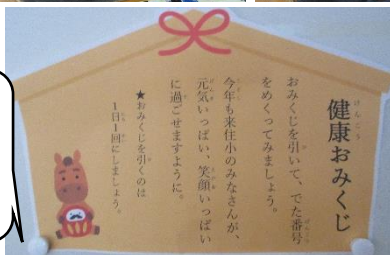 健康おみくじ
おみくじを引いて、でた番号
をめくってみましょう。
今年も来住小のみなさんが、
元気いっぱい、笑顔いっぱい
に過ごせますように。
★おみくじを引くのは
1日1回にしましょう。